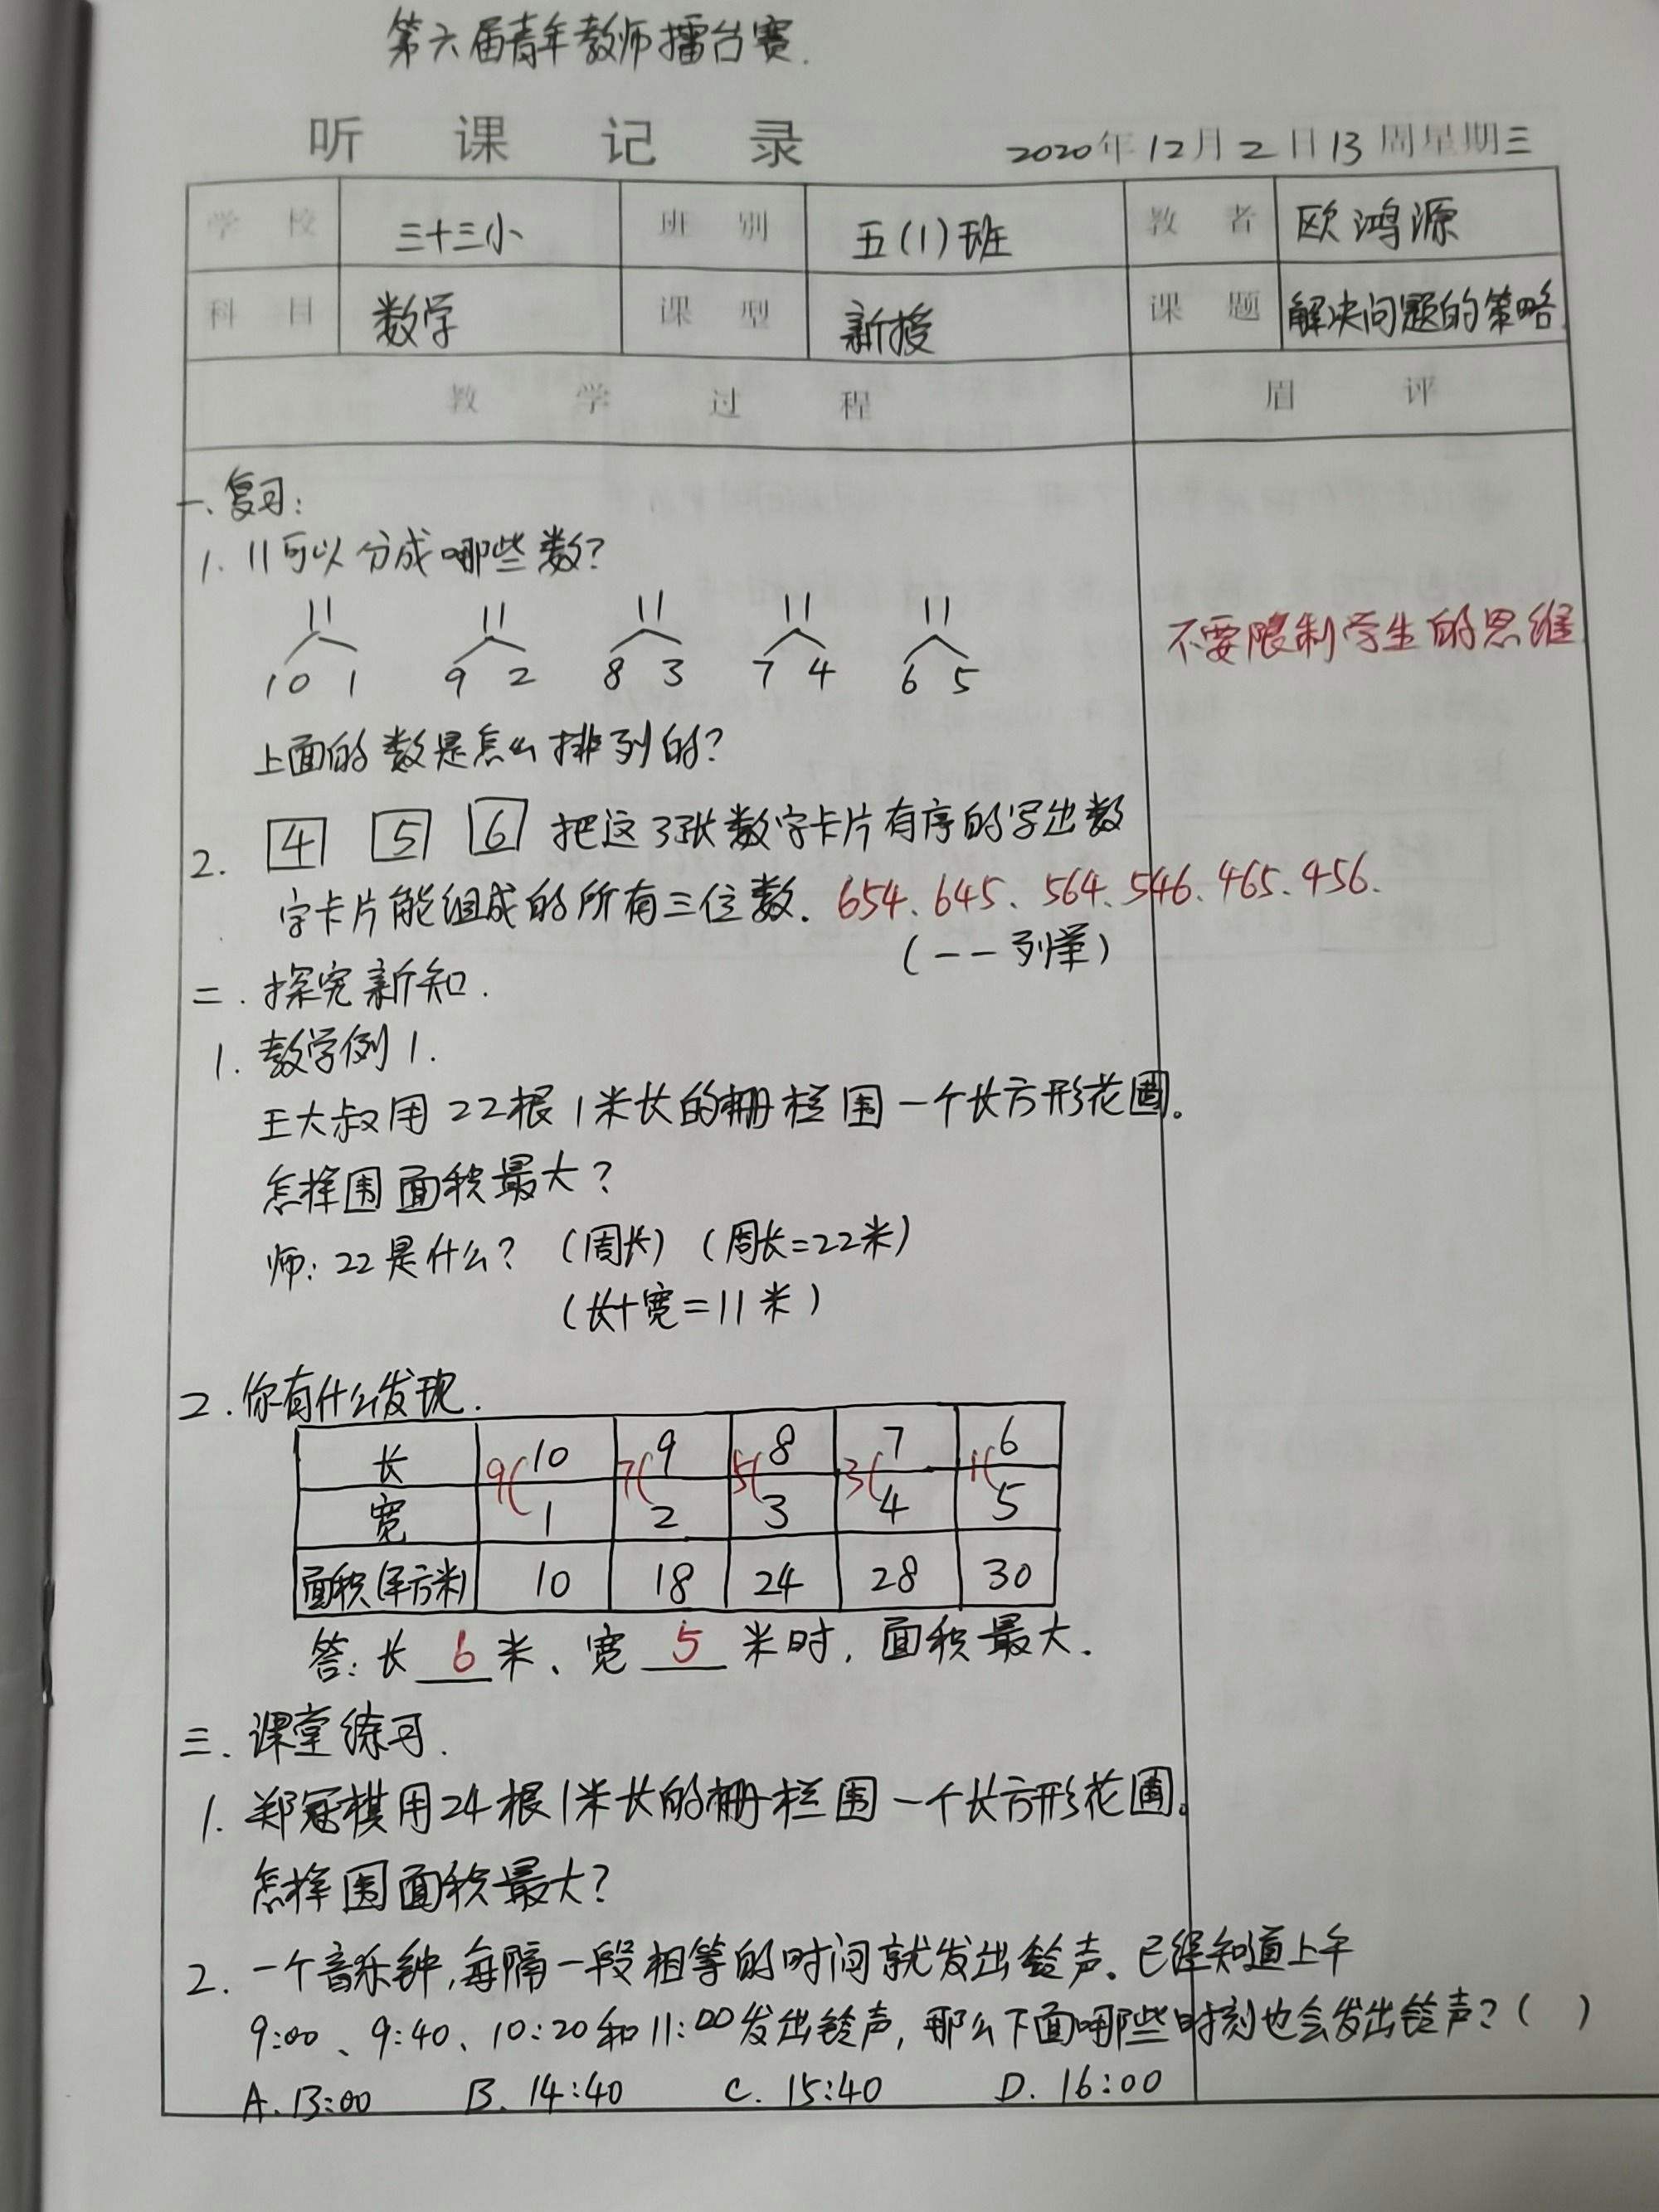 第六届青年教师擂台赛.
听 课 记 录 2020年12月2日13周星期三
学 校 三十三小 班 别 五(1)班 教 者 欧鸿源
科 目 数学 课 型 新授 课 题 解决问题的策略
教 学 过 程 眉 评
一、复习:
1. 11可以分成哪些数?
11 11 11 11 11
10 1 9 2 8 3 7 4 6 5
不要限制学生的思维
上面的数是怎么排列的?
2. 4 5 6 把这3张数字卡片有序的写出数
字卡片能组成的所有三位数. 654、645、564、546、465、456.
(一一列举)
二. 探究新知.
1. 教学例1.
王大叔用22根1米长的栅栏围一个长方形花圃。
怎样围面积最大?
师: 22是什么? (周长) (周长=22米)
(长+宽=11米)
2. 你有什么发现.
长 10 9 8 7 6
9( 7( 5( 3( 1(
宽 1 2 3 4 5
面积(平方米) 10 18 24 28 30
答: 长 6 米、宽 5 米时, 面积最大.
三. 课堂练习.
1. 郑冠棋用24根1米长的栅栏围一个长方形花圃。
怎样围面积最大?
2. 一个音乐钟,每隔一段相等的时间就发出铃声。已经知道上午
9:00、9:40、10:20和11:00发出铃声, 那么下面哪些时刻也会发出铃声?( )
A. 13:00 B. 14:40 C. 15:40 D. 16:00